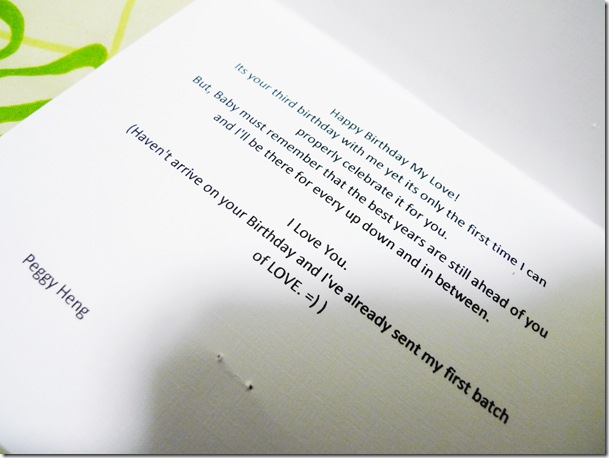 Happy Birthday My Love!
Its your third birthday with me yet its only the first time I can
properly celebrate it for you.
But, Baby must remember that the best years are still ahead of you
and I'll be there for every up down and in between.
I Love You.
(Haven't arrive on your Birthday and I've already sent my first batch
of LOVE. =) )
Peggy Heng